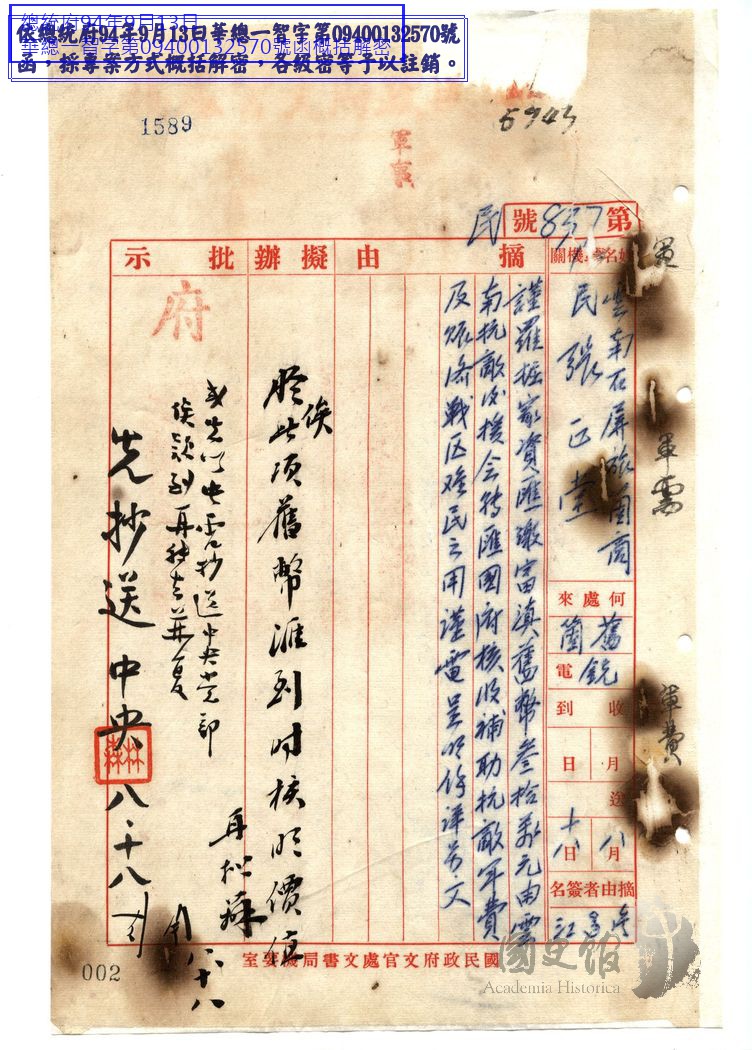 總統府94年9月13日
華總一智字第09400132570號函概括解密
依總統府94年9月13日華總一智字第09400132570號
函,採專案方式概括解密,各級密等予以註銷。
1589
5943
軍事
第837號
民
姓名或機關
雲南石屏旅箇商
民張正堂
何處來
舊箇
銑電
收到
月
日
送
八月
十八日
摘由者簽名
摘由
謹羅掘家資匯繳富滇舊幣叁拾萬元由雲
南抗敵後援會轉匯國府核收補助抗敵軍費
及賑濟戰區难民之用謹電呈明餘詳另文
擬辦
俟
此項舊幣滙到时核明價值
再擬辦
八、十八
批示
府
或先以電抄送中央党部
俟款到再
先抄送中央
八、十八
軍
軍需
軍費
國民政府文官處文書局機要室
002
國史館
Academia Historica